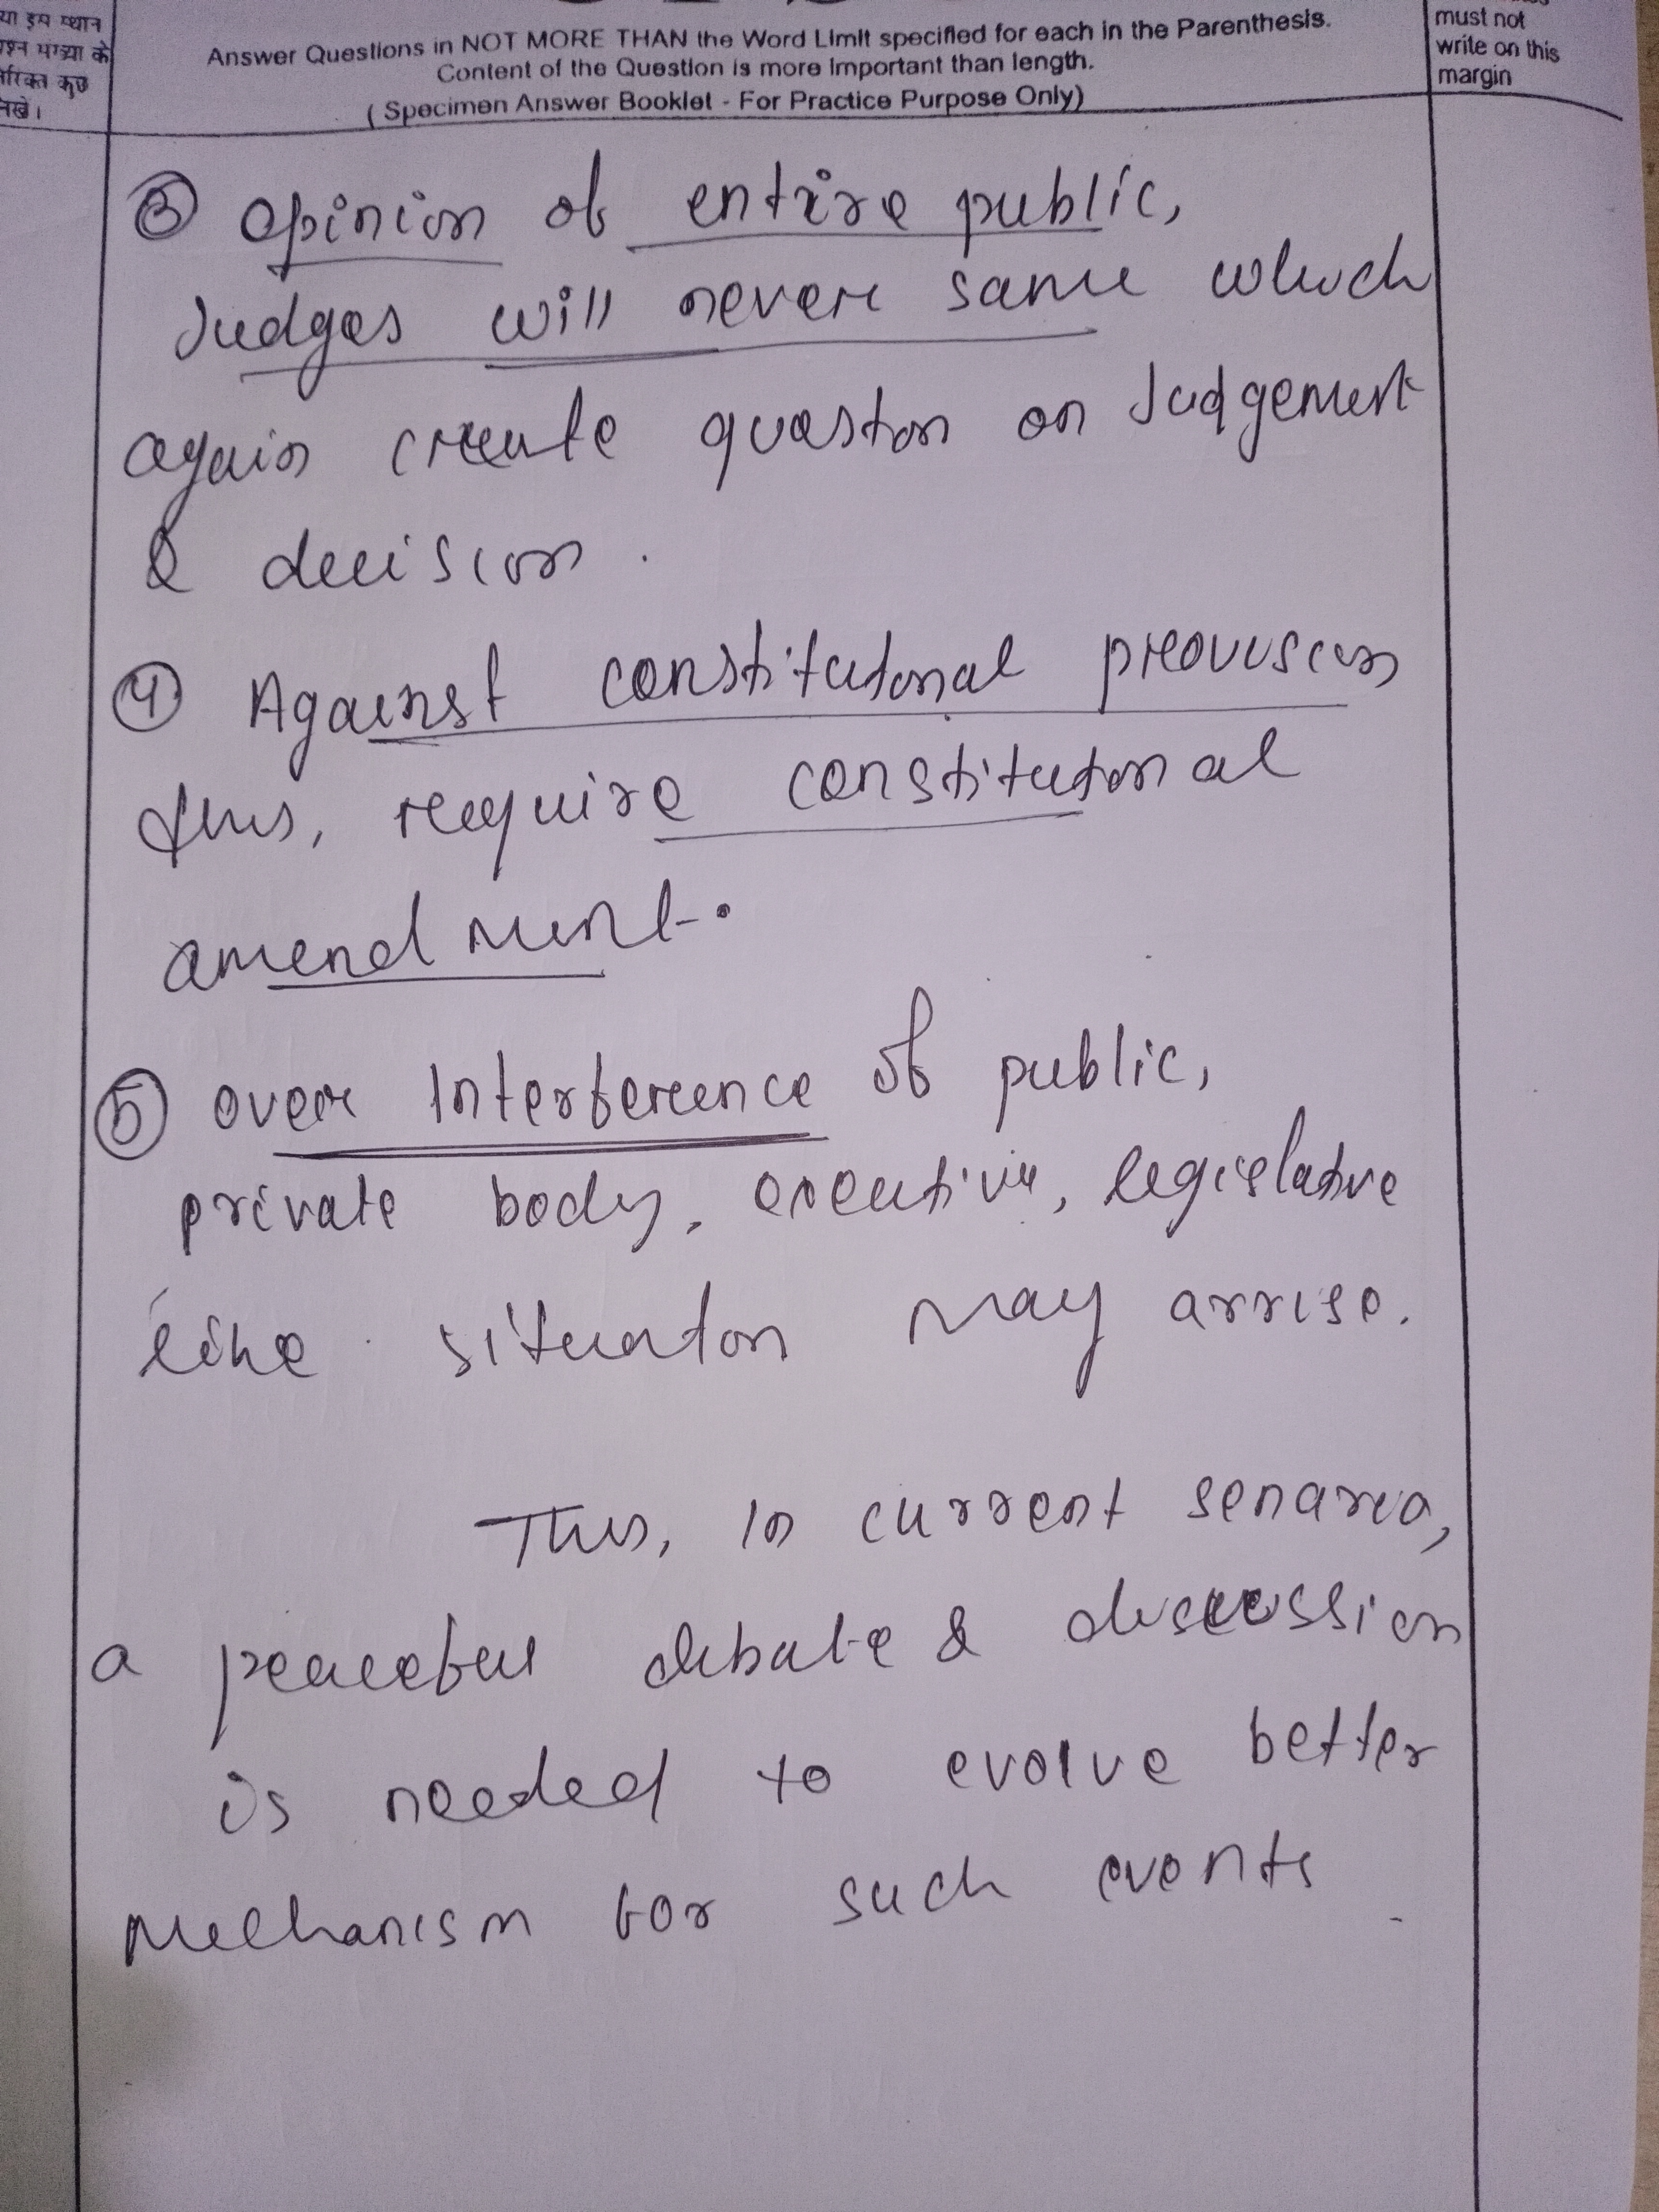 या इस स्थान
प्रश्न संख्या के
तिरिक्त कुछ
लिखें।
Answer Questions in NOT MORE THAN the Word Limit specified for each in the Parenthesis.
Content of the Question is more important than length.
( Specimen Answer Booklet - For Practice Purpose Only)
must not
write on this
margin
③ opinion of entire public,
Judges will never same which
again create queston on Judgement
& decision.
④ Against constitutonal provision
thus, require constitutonal
amendment.
⑤ over Interference of public,
private body, executive, legislatve
like situaton may arrise.
Thus, in current senario,
a peaceful debate & discussion
is needed to evolve better
Mechanism for such events